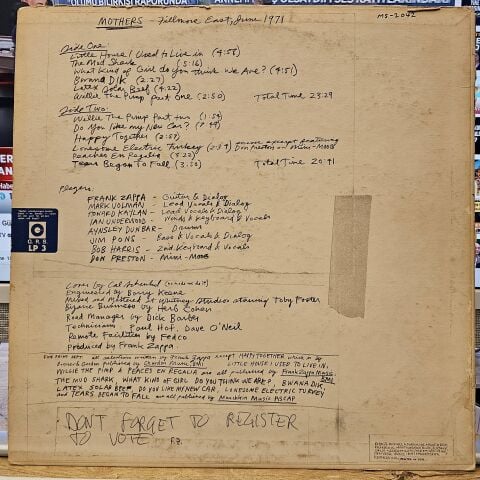 MOTHERS - Fillmore East, June 1971
MS-2042
Side One
Little House I Used to Live in (4:58)
The Mud Shark (5:16)
What Kind of Girl do you think We Are? (4:51)
Bwana Dik (2:27)
Latex Solar Beef (4:22)
Willie The Pimp Part One (2:50) Total Time 23:29
Side Two:
Willie The Pimp Part two (1:54)
Do You like my New Car?
Happy Together (2:57)
Lonesome Electric Turkey
Peaches En Regalia (3:22)
Tears Began To Fall Total Time 20:41
Players:
FRANK ZAPPA - Guitar & Dialog
MARK VOLMAN - Lead Vocals & Dialog
HOWARD KAYLAN - Lead Vocals & Dialog
IAN UNDERWOOD - Winds & Keyboard & Vocals
AYNSLEY DUNBAR - Drums
JIM PONS - Bass & Vocals & Dialog
BOB HARRIS - 2nd Keyboard & Vocals
DON PRESTON - Mini-Moog
G.R.S.
LP 3
Cover by Cal Schenkel
Engineered by Barry Keene
Mixed and Mastered at Whitney Studios starring Toby Foster
Bizarre Business by Herb Cohen
Road Manager by Dick Barber
Technicians Paul Hof, Dave O'Neil
Remote Facilities by Fedco
Produced by Frank Zappa
all selections written by Frank Zappa except HAPPY TOGETHER which is by
LITTLE HOUSE I USED TO LIVE IN,
WILLIE THE PIMP & PEACES EN REGALIA are all published by Frank Zappa Music BMI
THE MUD SHARK, WHAT KIND OF GIRL DO YOU THINK WE ARE?, BWANA DIK,
LATEX SOLAR BEEF, DO YOU LIKE MY NEW CAR, LONESOME ELECTRIC TURKEY
and TEARS BEGAN TO FALL are all published by Munchkin Music ASCAP
DON'T FORGET TO REGISTER
TO VOTE F.Z.